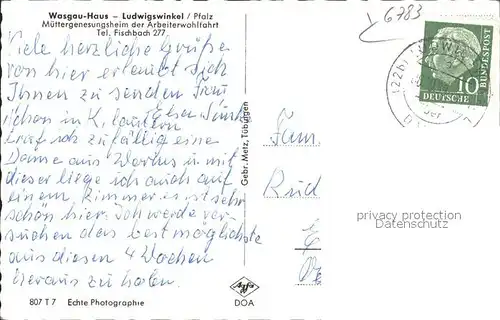 Wasgau-Haus – Ludwigswinkel / Pfalz
Müttergenesungsheim der Arbeiterwohlfahrt
Tel. Fischbach 277
Viele herzliche Grüße
von hier erlaubt sich
Ihnen zu senden Frau
Elsa
schon in K. lautern
traf ich zufällig eine
Dame aus u. mit
dieser liege ich auch auf
einem Zimmer. es ist sehr
schön hier. Ich werde ver-
suchen das bestmöglichste
aus diesen 4 Wochen
heraus zu holen.
807 T 7 Echte Photographie
Gebr. Metz, Tübingen
Agfa
DOA
6783
(22b)
10
DEUTSCHE
BUNDESPOST
Fam.
Rud
privacy protection
Datenschutz